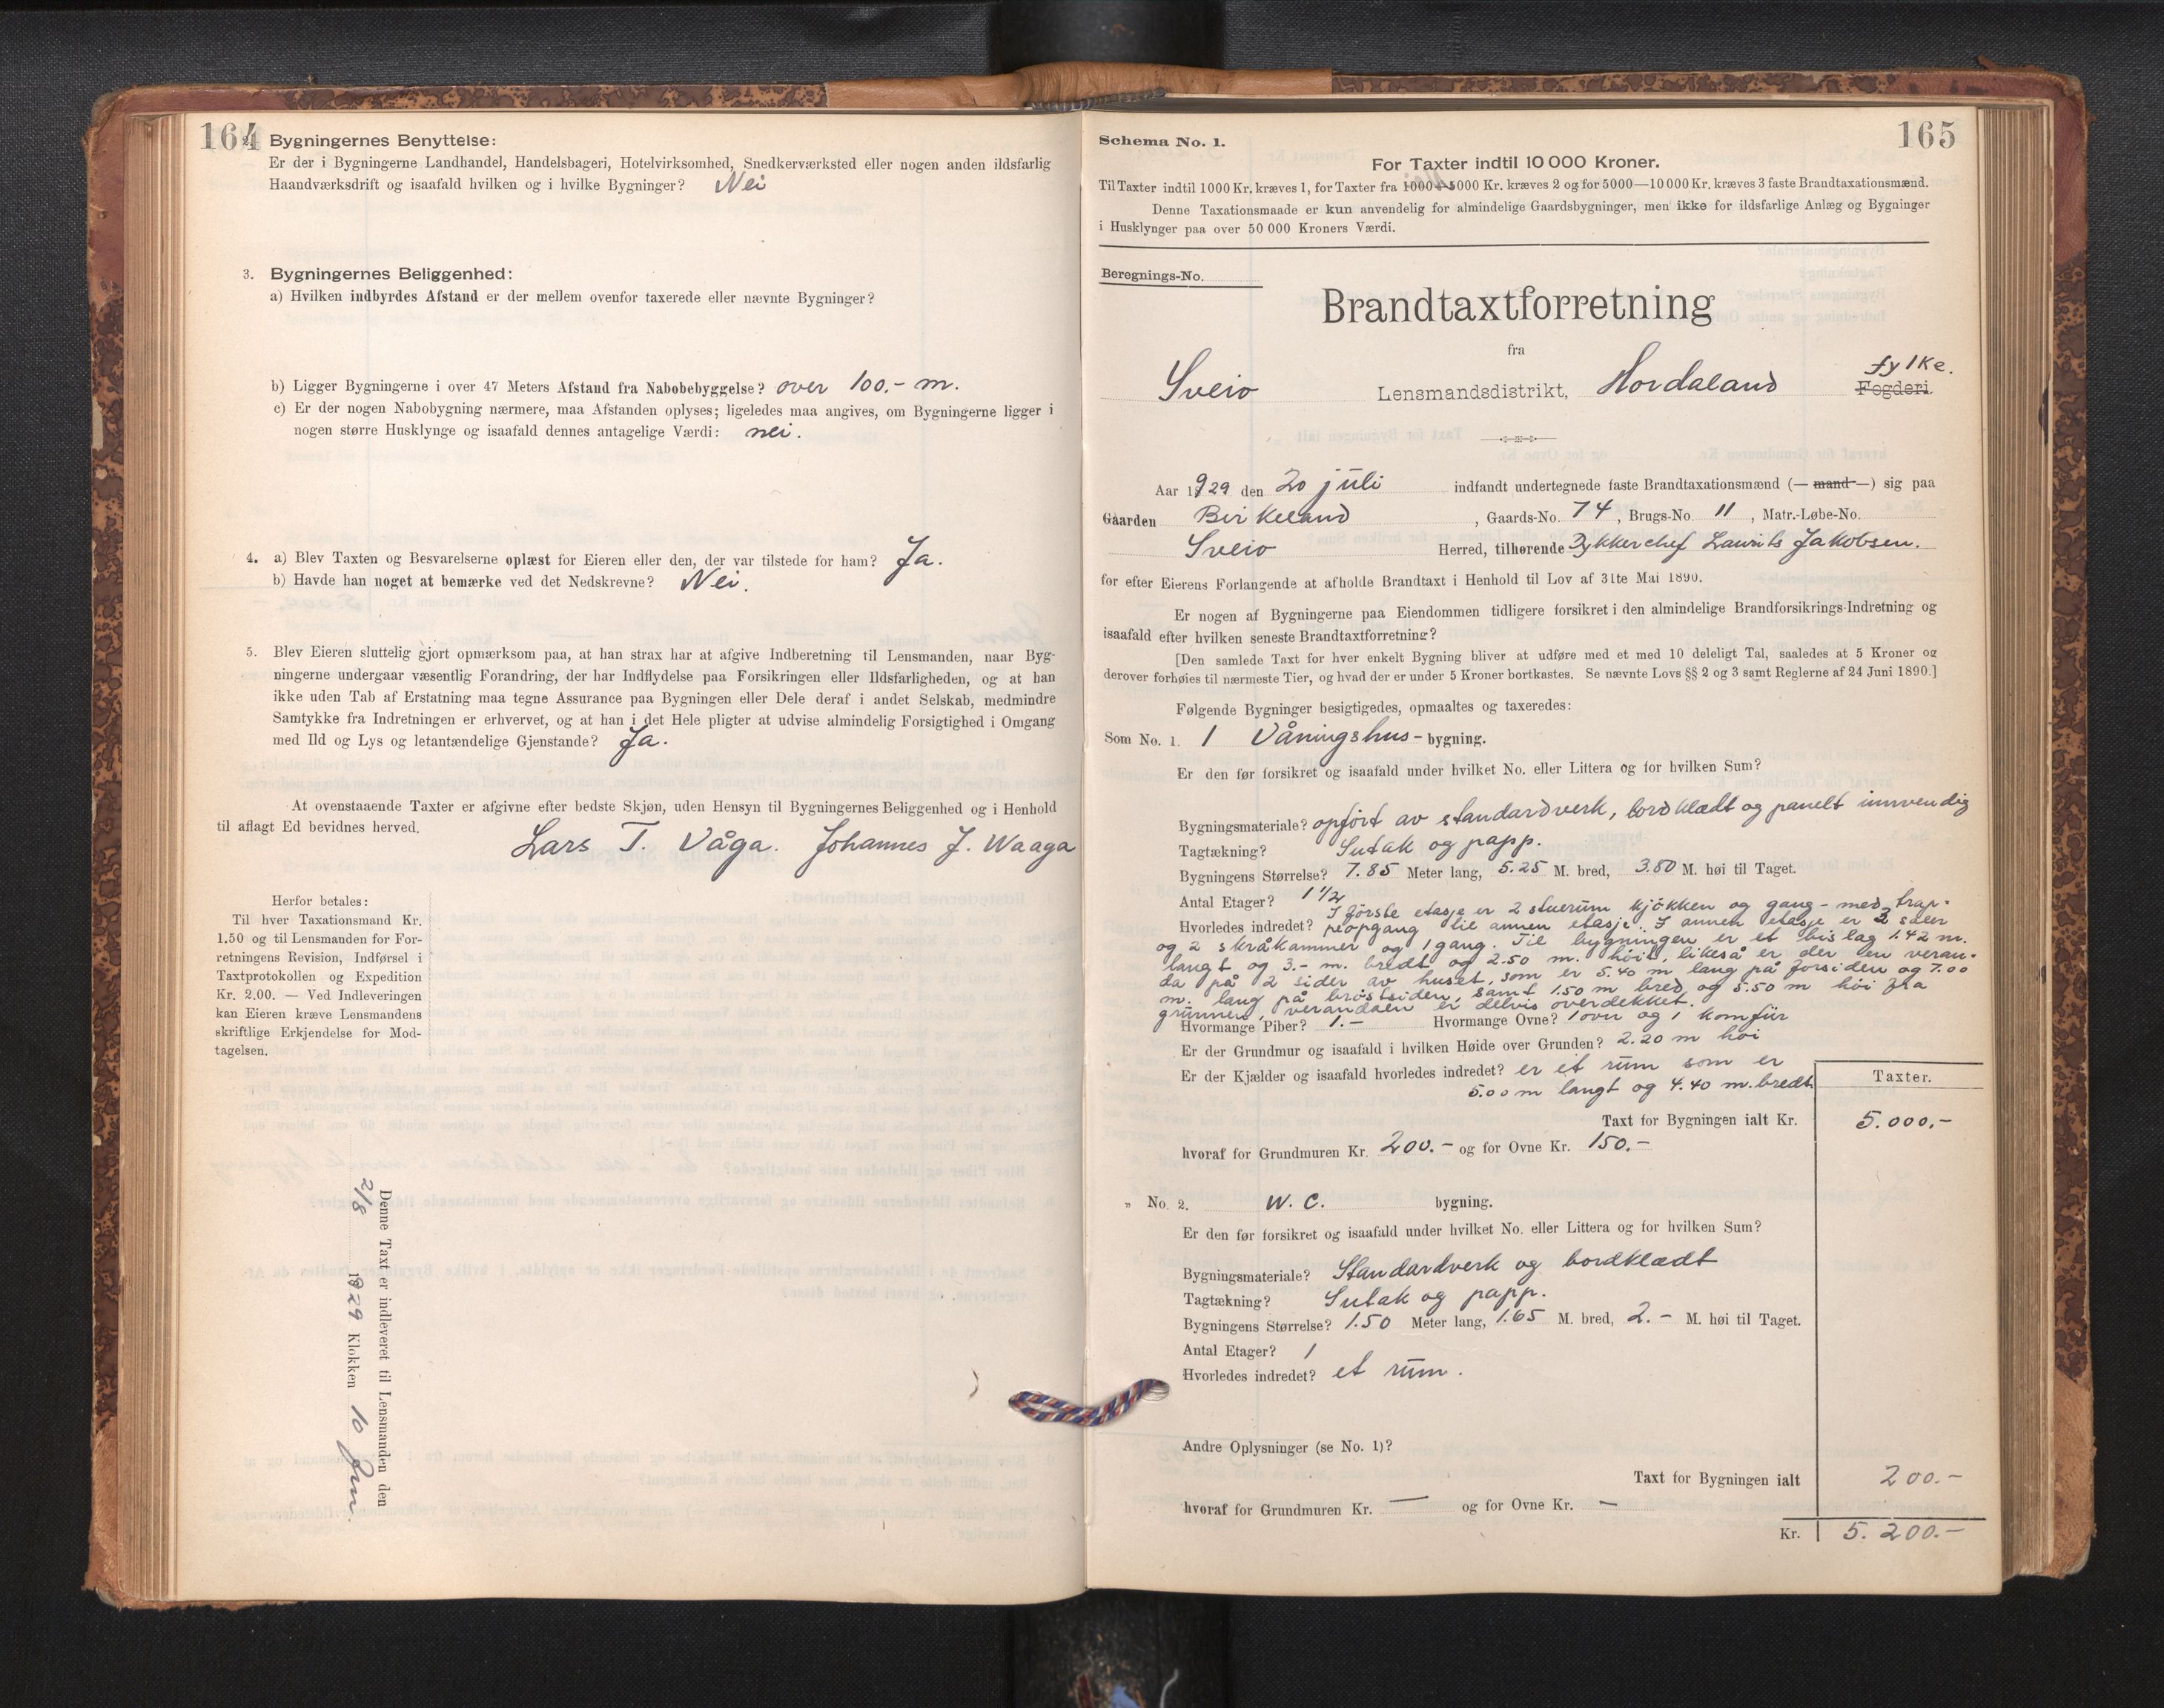 164
2. Bygningernes Benyttelse:
Er der i Bygningerne Landhandel, Handelsbageri, Hotelvirksomhed, Snedkerværksted eller nogen anden ildsfarlig
Haandværksdrift og isaafald hvilken og i hvilke Bygninger? Nei
3. Bygningernes Beliggenhed:
a) Hvilken indbyrdes Afstand er der mellem ovenfor taxerede eller nævnte Bygninger?
b) Ligger Bygningerne i over 47 Meters Afstand fra Nabobebyggelse? over 100.- m.
c) Er der nogen Nabobygning nærmere, maa Afstanden oplyses; ligeledes maa angives, om Bygningerne ligger i
nogen større Husklynge og isaafald dennes antagelige Værdi: nei.
4. a) Blev Taxten og Besvarelserne oplæst for Eieren eller den, der var tilstede for ham? Ja.
b) Havde han noget at bemærke ved det Nedskrevne? Nei.
5. Blev Eieren sluttelig gjort opmærksom paa, at han strax har at afgive Indberetning til Lensmanden, naar Byg-
ningerne undergaar væsentlig Forandring, der har Indflydelse paa Forsikringen eller Ildsfarligheden, og at han
ikke uden Tab af Erstatning maa tegne Assurance paa Bygningen eller Dele deraf i andet Selskab, medmindre
Samtykke fra Indretningen er erhvervet, og at han i det Hele pligter at udvise almindelig Forsigtighed i Omgang
med Ild og Lys og letantændelige Gjenstande? Ja.
At ovenstaaende Taxter er afgivne efter bedste Skjøn, uden Hensyn til Bygningernes Beliggenhed og i Henhold
til aflagt Ed bevidnes herved.
Lars T. Våga. Johannes J. Waaga
Herfor betales:
Til hver Taxationsmand Kr.
1.50 og til Lensmanden for For-
retningens Revision, Indførsel i
Taxtprotokollen og Expedition
Kr. 2.00. — Ved Indleveringen
kan Eieren kræve Lensmandens
skriftlige Erkjendelse for Mod-
tagelsen.
Denne Taxt er indleveret til Lensmanden den
2/8 1929 Klokken 10 fm.
165
Schema No. 1.
For Taxter indtil 10 000 Kroner.
Til Taxter indtil 1000 Kr. kræves 1, for Taxter fra 1000—5000 Kr. kræves 2 og for 5000—10 000 Kr. kræves 3 faste Brandtaxationsmænd.
Denne Taxationsmaade er kun anvendelig for almindelige Gaardsbygninger, men ikke for ildsfarlige Anlæg og Bygninger
i Husklynger paa over 50 000 Kroners Værdi.
Beregnings-No.
Brandtaxtforretning
fra
Sveio Lensmandsdistrikt, Hordaland fylke.
Fogderi.
Aar 1929 den 20 juli indfandt undertegnede faste Brandtaxationsmænd (— mand —) sig paa
Gaarden Birkeland, Gaards-No. 74, Brugs-No. 11, Matr.-Løbe-No.
Sveio Herred, tilhørende Dykkerchef Laurits Jakobsen.
for efter Eierens Forlangende at afholde Brandtaxt i Henhold til Lov af 31te Mai 1890.
Er nogen af Bygningerne paa Eiendommen tidligere forsikret i den almindelige Brandforsikrings-Indretning og
isaafald efter hvilken seneste Brandtaxtforretning?
[Den samlede Taxt for hver enkelt Bygning bliver at udføre med et med 10 deleligt Tal, saaledes at 5 Kroner og
derover forhøies til nærmeste Tier, og hvad der er under 5 Kroner bortkastes. Se nævnte Lovs §§ 2 og 3 samt Reglerne af 24 Juni 1890.]
Følgende Bygninger besigtigedes, opmaaltes og taxeredes:
Som No. 1. 1 Våningshus-bygning.
Er den før forsikret og isaafald under hvilket No. eller Littera og for hvilken Sum?
Bygningsmateriale? opført av standardverk, bordklædt og panelt innvendig
Tagtækning? Sutak og papp.
Bygningens Størrelse? 7.85 Meter lang, 5.25 M. bred, 3.80 M. høi til Taget.
Antal Etager? 1 1/2
I første etasje er 2 stuerum kjøkken og gang - med trap-
Hvorledes indredet? peopgang til annen etasje. I annen etasje er 2 saler
og 2 skråkammer og 1 gang. Til bygningen er et bislag 1.42 m.
langt og 3.- m. bredt og 2.50 m. høit, likeså er der en veran-
da på 2 sider av huset, som er 5.40 m lang på forsiden og 7.00
m. lang på brøstsiden, samt 1.50 m bred og 5.50 m høi fra
grunnen, verandaen er delvis overdekket.
Hvormange Piber? 1.- Hvormange Ovne? 1 ovn og 1 komfür
Er der Grundmur og isaafald i hvilken Høide over Grunden? 2.20 m høi
Er der Kjælder og isaafald hvorledes indredet? er et rum som er
5.00 m langt og 4.40 m. bredt
Taxter.
Taxt for Bygningen ialt Kr. 5.000.-
hvoraf for Grundmuren Kr. 200.- og for Ovne Kr. 150.-
„ No. 2. W. C. bygning.
Er den før forsikret og isaafald under hvilket No. eller Littera og for hvilken Sum?
Bygningsmateriale? Standardverk og bordklædt
Tagtækning? Sutak og papp.
Bygningens Størrelse? 1.50 Meter lang, 1.65 M. bred, 2.- M. høi til Taget.
Antal Etager? 1
Hvorledes indredet? et rum.
Andre Oplysninger (se No. 1)?
Taxt for Bygningen ialt 200.-
hvoraf for Grundmuren Kr. — og for Ovne Kr. —
Kr. 5.200.-